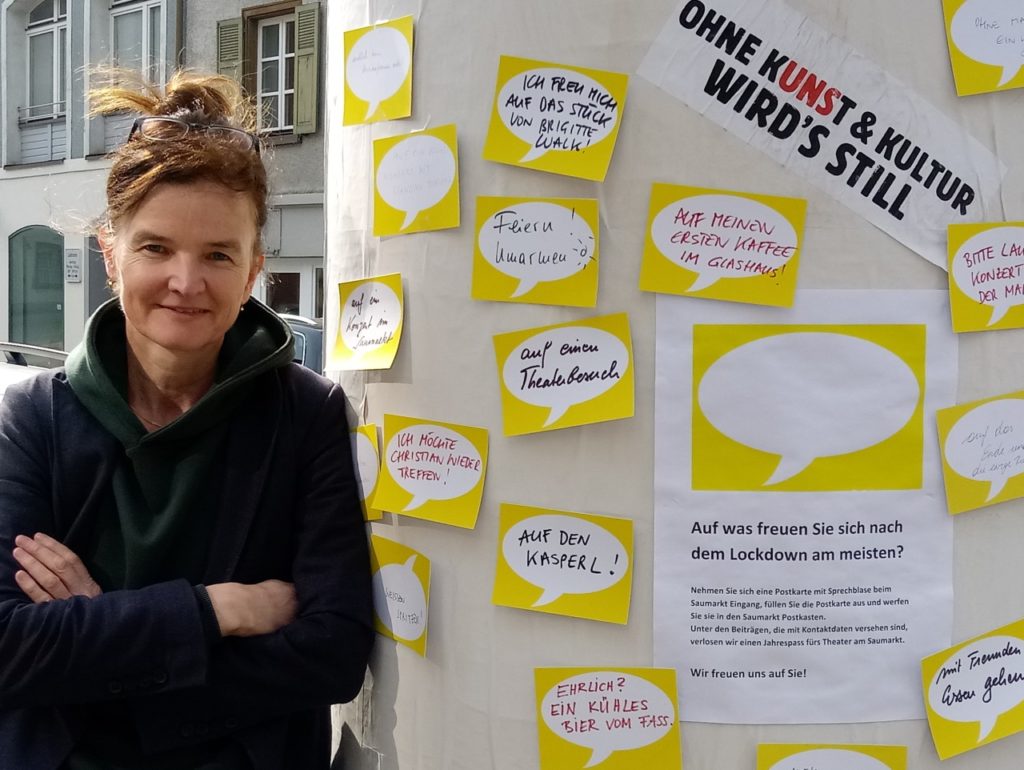 OHNE KUNST & KULTUR
WIRD'S STILL
ICH FREU MICH
AUF DAS STÜCK
VON BRIGITTE
WALK!
Feiern!
Umarmen
AUF MEINEN
ERSTEN KAFFEE
IM GLASHAUS!
auf ein
Konzert im
Saumarkt
auf einen
Theaterbesuch
ICH MÖCHTE
CHRISTIAN WIEDER
TREFFEN!
AUF DEN
KASPERL!
EHRLICH?
EIN KÜHLES
BIER VOM FASS.
Auf was freuen Sie sich nach
dem Lockdown am meisten?
Nehmen Sie sich eine Postkarte mit Sprechblase beim
Saumarkt Eingang, füllen Sie die Postkarte aus und werfen
Sie sie in den Saumarkt Postkasten.
Unter den Beiträgen, die mit Kontaktdaten versehen sind,
verlosen wir einen Jahrespass fürs Theater am Saumarkt.
Wir freuen uns auf Sie!
OHNE
BITTE
KONZERT
DER
auf das
Ende
mit Freunden
Essen gehen